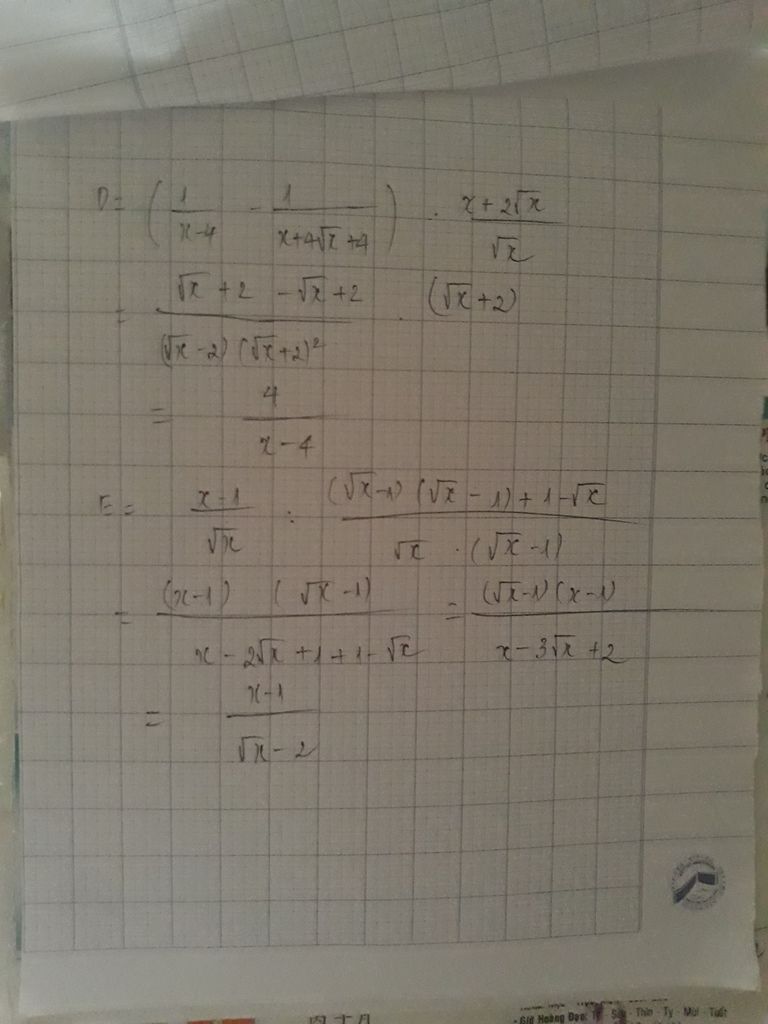 D = ( 1/(x-4) - 1/(x+4√x+4) ) . (x+2√x)/√x
= (√x+2 -√x+2)/((√x-2)(√x+2)²) . (√x+2)
= 4/(x-4)
E = (x-1)/√x : ((√x-1)(√x-1)+1-√x)/(√x . (√x-1))
= ((x-1) (√x-1))/(x-2√x+1+1-√x) = ((√x-1)(x-1))/(x-3√x+2)
= (x-1)/(√x-2)
- Giờ Hoàng Đạo: - Thìn - Tỵ - Mùi - Tuất